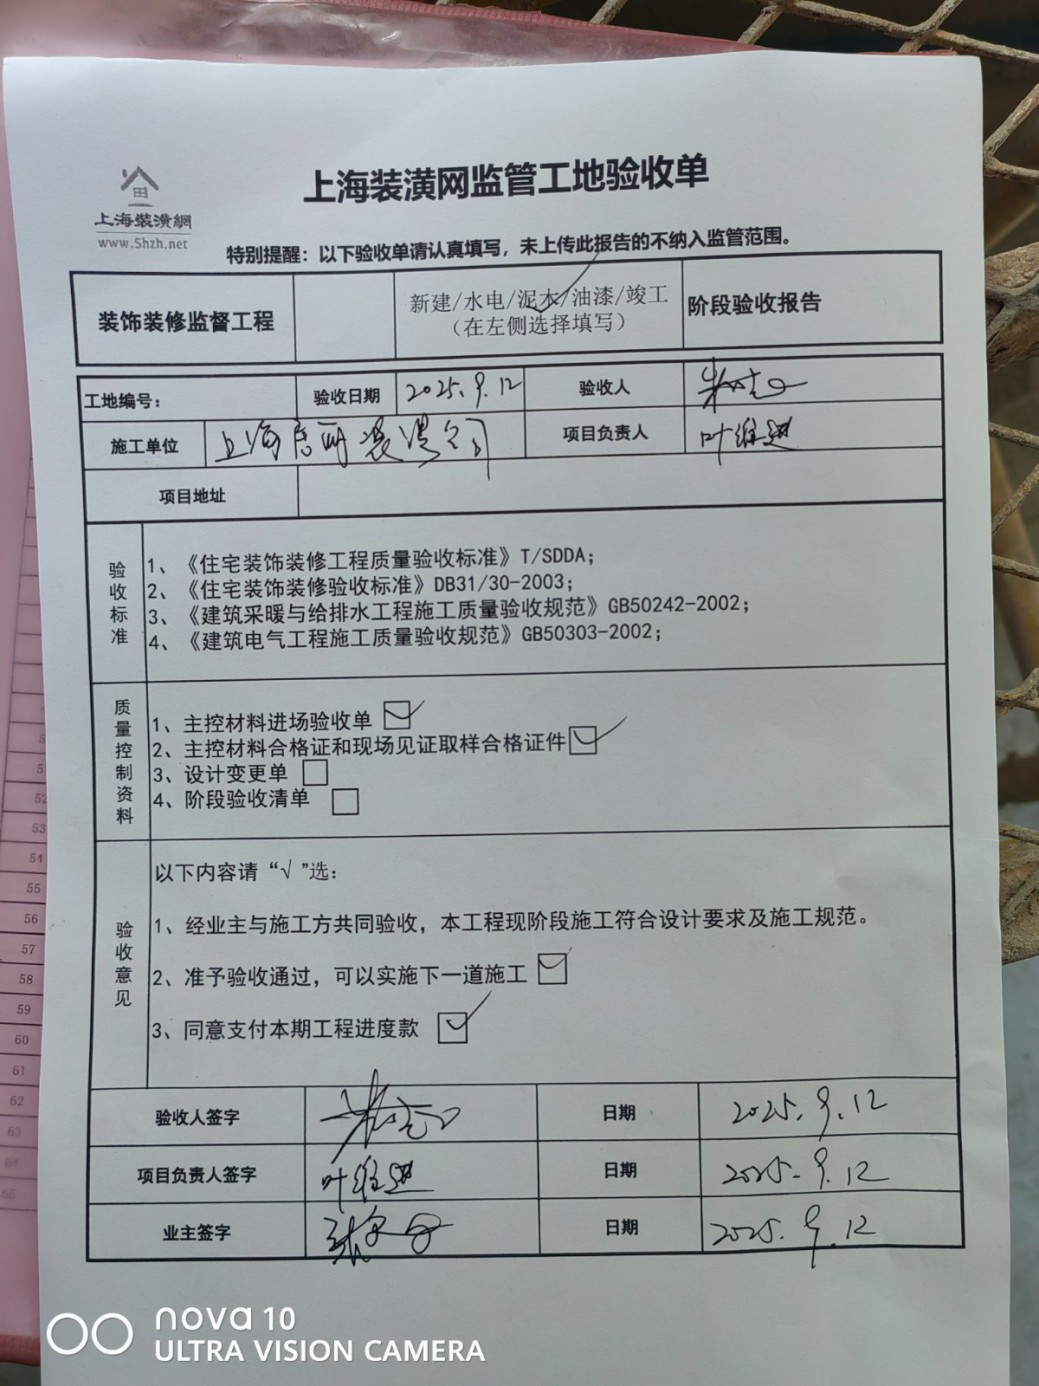 上海装潢网监管工地验收单
上海装潢網
www.Shzh.net
特别提醒：以下验收单请认真填写，未上传此报告的不纳入监管范围。
装饰装修监督工程
新建/水电/泥木/油漆/竣工
（在左侧选择填写）
阶段验收报告
工地编号：
验收日期 2025.9.12 验收人
施工单位 上海 装潢公司 项目负责人 叶维
项目地址
验收标准
1、《住宅装饰装修工程质量验收标准》T/SDDA；
2、《住宅装饰装修验收标准》DB31/30-2003；
3、《建筑采暖与给排水工程施工质量验收规范》GB50242-2002；
4、《建筑电气工程施工质量验收规范》GB50303-2002；
质量控制资料
1、主控材料进场验收单
2、主控材料合格证和现场见证取样合格证件
3、设计变更单
4、阶段验收清单
验收意见
以下内容请“√”选：
1、经业主与施工方共同验收，本工程现阶段施工符合设计要求及施工规范。
2、准予验收通过，可以实施下一道施工
3、同意支付本期工程进度款
验收人签字 日期 2025.9.12
项目负责人签字 叶维 日期 2025.9.12
业主签字 日期 2025.9.12
51
52
53
54
55
56
57
58
59
60
61
62
63
64
65
nova 10
ULTRA VISION CAMERA